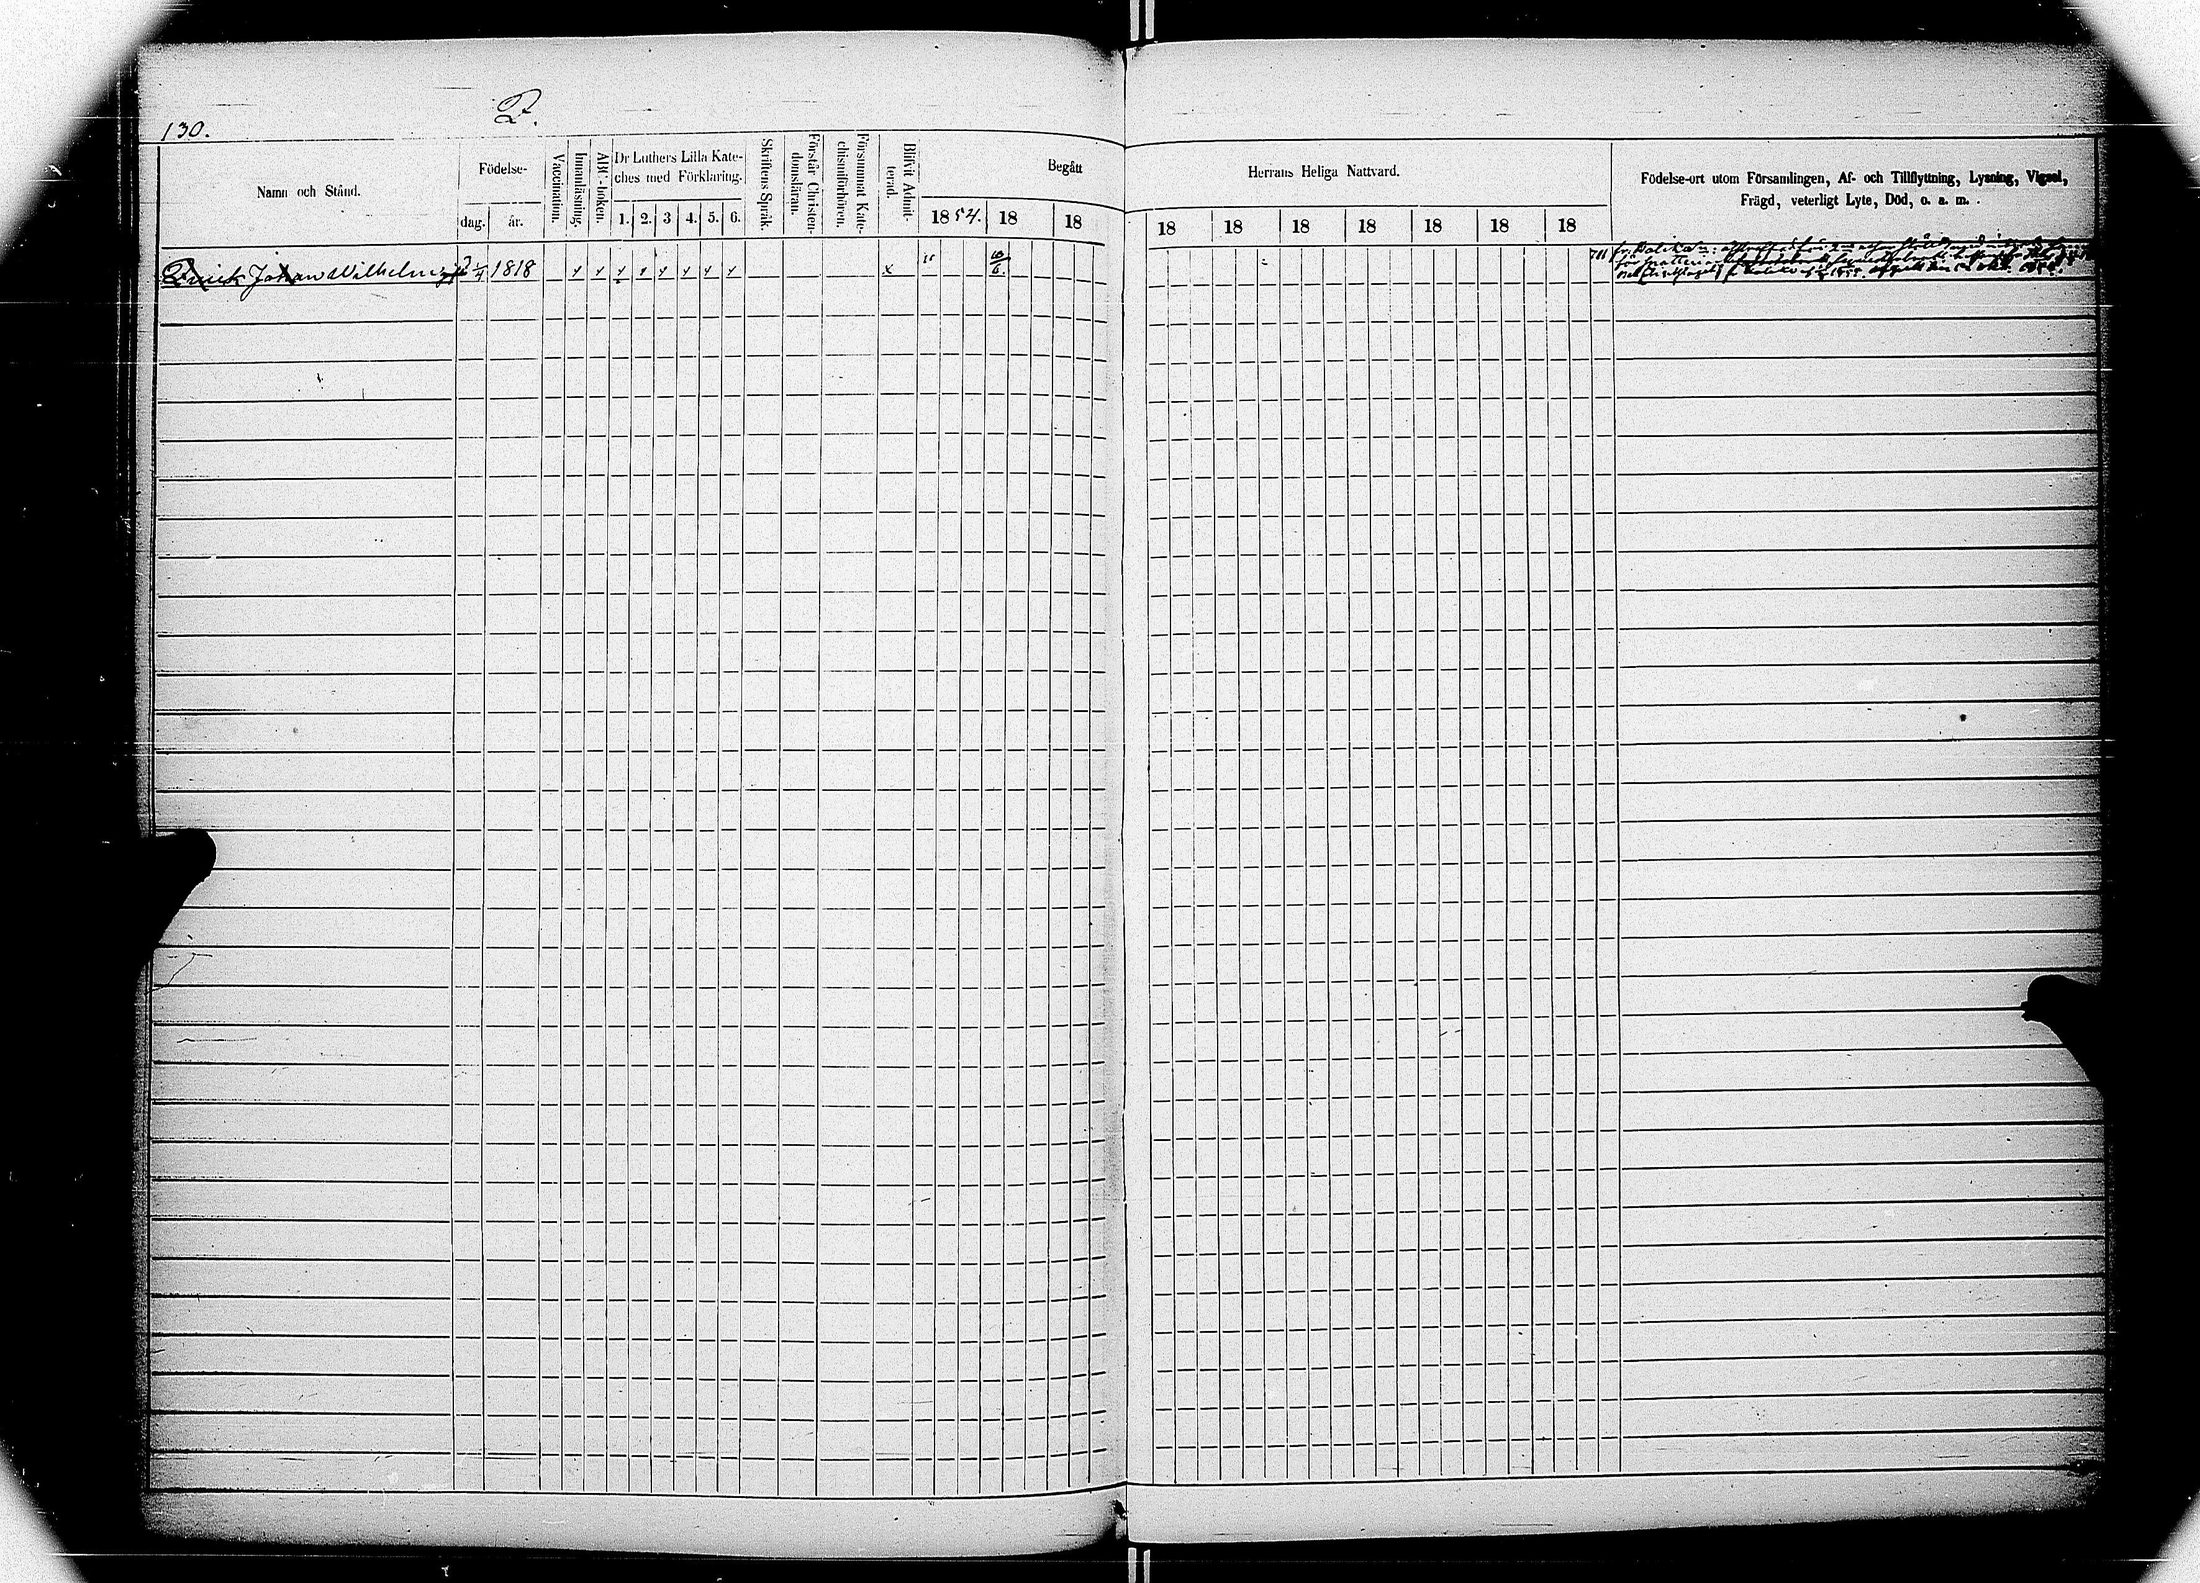 130.
Q.
Namn och Stånd.
Födelse-
dag.
år.
Vaccination.
Innanläsning.
ABC-boken.
Dr Luthers Lilla Kate-
ches med Förklaring.
1. 2. 3 4. 5. 6.
Skriftens Språk.
Förstår Christen-
domsläran.
Försummat Kate-
chismiförhören.
Blifvit Admit-
terad.
Begått
1854. 18 18
Herrans Heliga Nattvard.
18 18 18 18 18 18 18
Födelse-ort utom Församlingen, Af- och Tillflyttning, Lysning, Vigsel,
Frägd, veterligt Lyte, Död, o. a. m.
Johan Wilhelm 1818